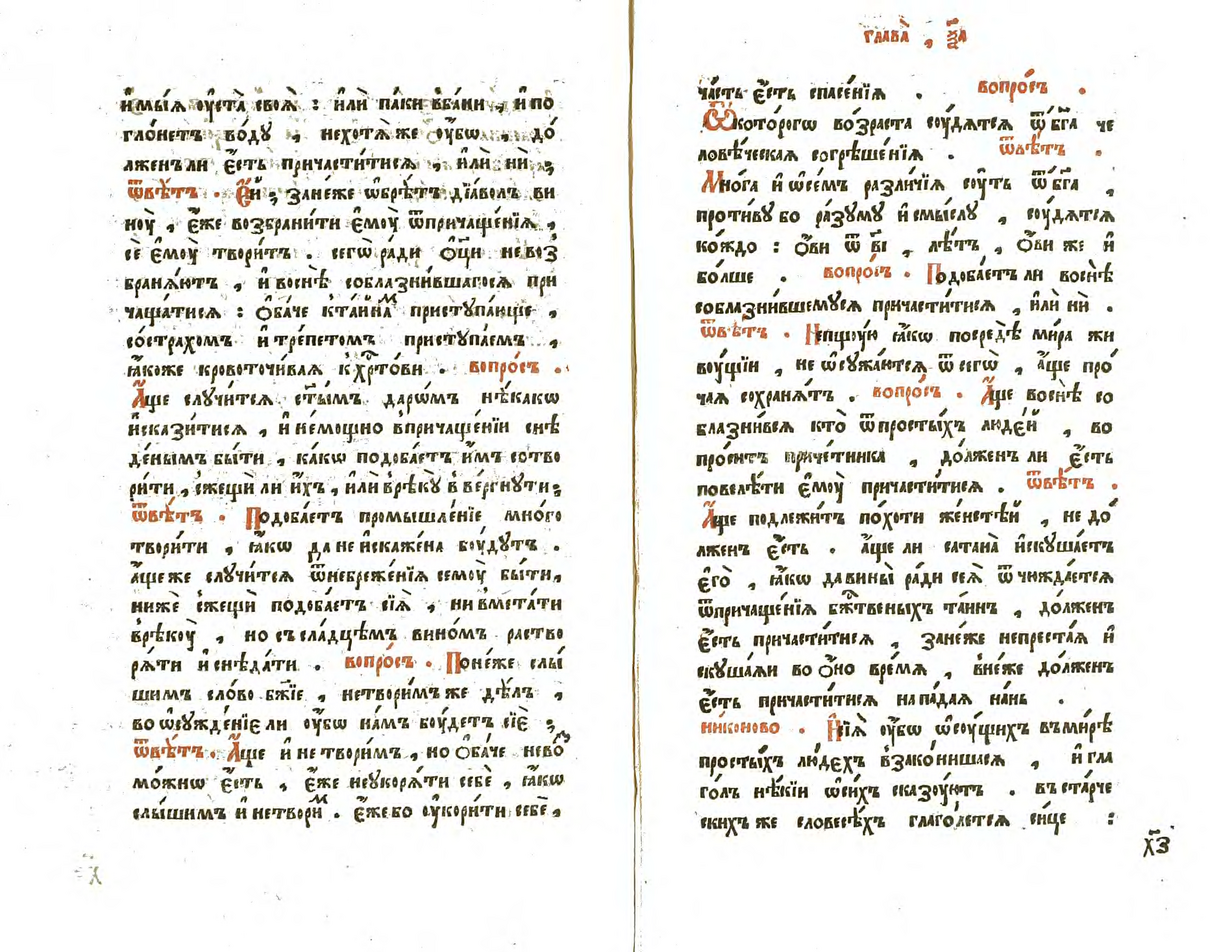 и҆мы́ѧ ᲂу҆ста̀ своѧ̀ : и҆лѝ па́ки вба́ни , и҆ по
гло́нетъ во́дꙋ , нехотѧ́ же ᲂу҆́бѡ , до́
лженъ ли є҆́сть причасти́тисѧ , и҆лѝ нѝ ;
ѿвѣ́тъ . Є҆́й ; занеже ѡ҆брѣ́тъ дїа́волъ ви
нꙋ̀ , є҆́же возбрани́ти є҆мꙋ̀ ѿпричаще́нїѧ ,
сѐ є҆мꙋ̀ твори́тъ . сегѡ̀ ра́ди ѻ҆ц҃и невоз
бранѧ́ютъ , и҆ воснѣ̀ соблазни́вшагосѧ при
чаща́тисѧ : ѻ҆ба́че кта́инаⷨ приступа́юще ,
состра́хомъ и҆ тре́петомъ приступа́емъ ,
ꙗ҆́коже кровоточи́ваѧ к҆хрⷭ҇то́ви . вопро́съ .
А҆́ще случи́тсѧ ст҃ы́мъ даро́мъ нѣ́какѡ
и҆сказѝтисѧ , и҆ немо́щно впричаще́нїи снѣ
де́нымъ бы́ти , ка́кѡ подоба́етъ и҆̀мъ сотво
ри́ти , сжещѝ ли и҆́хъ , и҆лѝ врѣ́ку вве́ргнути ;
ѿвѣ́тъ . Подоба́етъ промышле́нїе мно́го
твори́ти , ꙗ҆́кѡ да не и҆скаже́на бꙋ́дутъ .
а҆́ще же случи́тсѧ ѿнебреже́нїѧ семꙋ̀ бы́ти ,
нижѐ сжещѝ подоба́етъ сїѧ̀ , ни вмета́ти
врѣ́кꙋ , но съ сла́дцѣмъ вино́мъ раство
рѧ́ти и҆ снѣда́ти . вопро́съ . Поне́же слы́
шимъ сло́во бж҃їе , нетвори́мъ же дѣ́лъ ,
во ѡ҆сꙋжде́нїе ли ᲂу҆́бѡ на́мъ бꙋ́детъ сїѐ ;
ѿвѣ́тъ . А҆́ще и҆ не твори́мъ , но ѻ҆ба́че нево
мо́жнѡ є҆́сть , є҆́же неукорѧ́ти себѐ , ꙗ҆́кѡ
слы́шимъ и҆ нетвориⷨ . є҆́же бо ᲂу҆кори́ти себѐ ,
х҃
глава̀ ,
ча́сть є҆́сть спасе́нїѧ . вопро́съ .
Ѿкото́рогѡ во́зраста сꙋ́дѧтсѧ ѿ бг҃а че
ловѣ́ческаѧ согрѣше́нїѧ . ѿвѣ́тъ .
Мно́га и҆ ѡ҆ се́мъ разли́чїѧ сꙋ́ть ѿ бг҃а ,
проти́ву бо ра́зуму и҆ смы́слу , сꙋ́дѧтсѧ
ко́ждо : ѻ҆́ви ѿ в҃і , лѣ́тъ , ѻ҆́ви же и҆
бо́лше . вопро́съ . Подоба́етъ ли воснѣ̀
соблазни́вшемусѧ причасти́тисѧ , и҆лѝ нѝ .
ѿвѣ́тъ . Непщꙋ́ю ꙗ҆́кѡ посредѣ̀ ми́ра жи
вꙋ́щїи , не ѡ҆сужа́ютсѧ ѿ сегѡ̀ , а҆́ще про́
чаѧ сохранѧ́тъ . вопро́съ . А҆́ще воснѣ̀ со
блазни́всѧ кто̀ ѿпросты́хъ люде́й , во
про́ситъ приче́тника , до́лженъ ли є҆́сть
повелѣ́ти є҆мꙋ̀ причасти́тисѧ . ѿвѣ́тъ .
А҆́ще подлежи́тъ по́хоти же́нстѣй , не до́
лженъ є҆́сть . а҆́ще ли сатана̀ и҆скуша́етъ
є҆го̀ , ꙗ҆́кѡ да вины̀ ра́ди сеѧ̀ ѿчижда́етсѧ
ѿпричаще́нїѧ бж҃твеныхъ та́инъ , до́лженъ
є҆́сть причасти́тисѧ , зане́же непреста́ѧ и҆
скуша́ѧи во ѻ҆́но вре́мѧ , вне́же до́лженъ
є҆́сть причасти́тисѧ напа́даѧ на́нь .
ни́коново . Нїѧ̀ ᲂу҆́бѡ ѡ҆ сꙋ́щихъ въ ми́рѣ
просты́хъ лю́дехъ взако́нишасѧ , и҆ гла
го́лъ нѣ́кїи ѡ҆ си́хъ сказꙋ́ютъ . въ ста́рче
скихъ же словесѣ́хъ глаго́летсѧ си́це :
х҃з